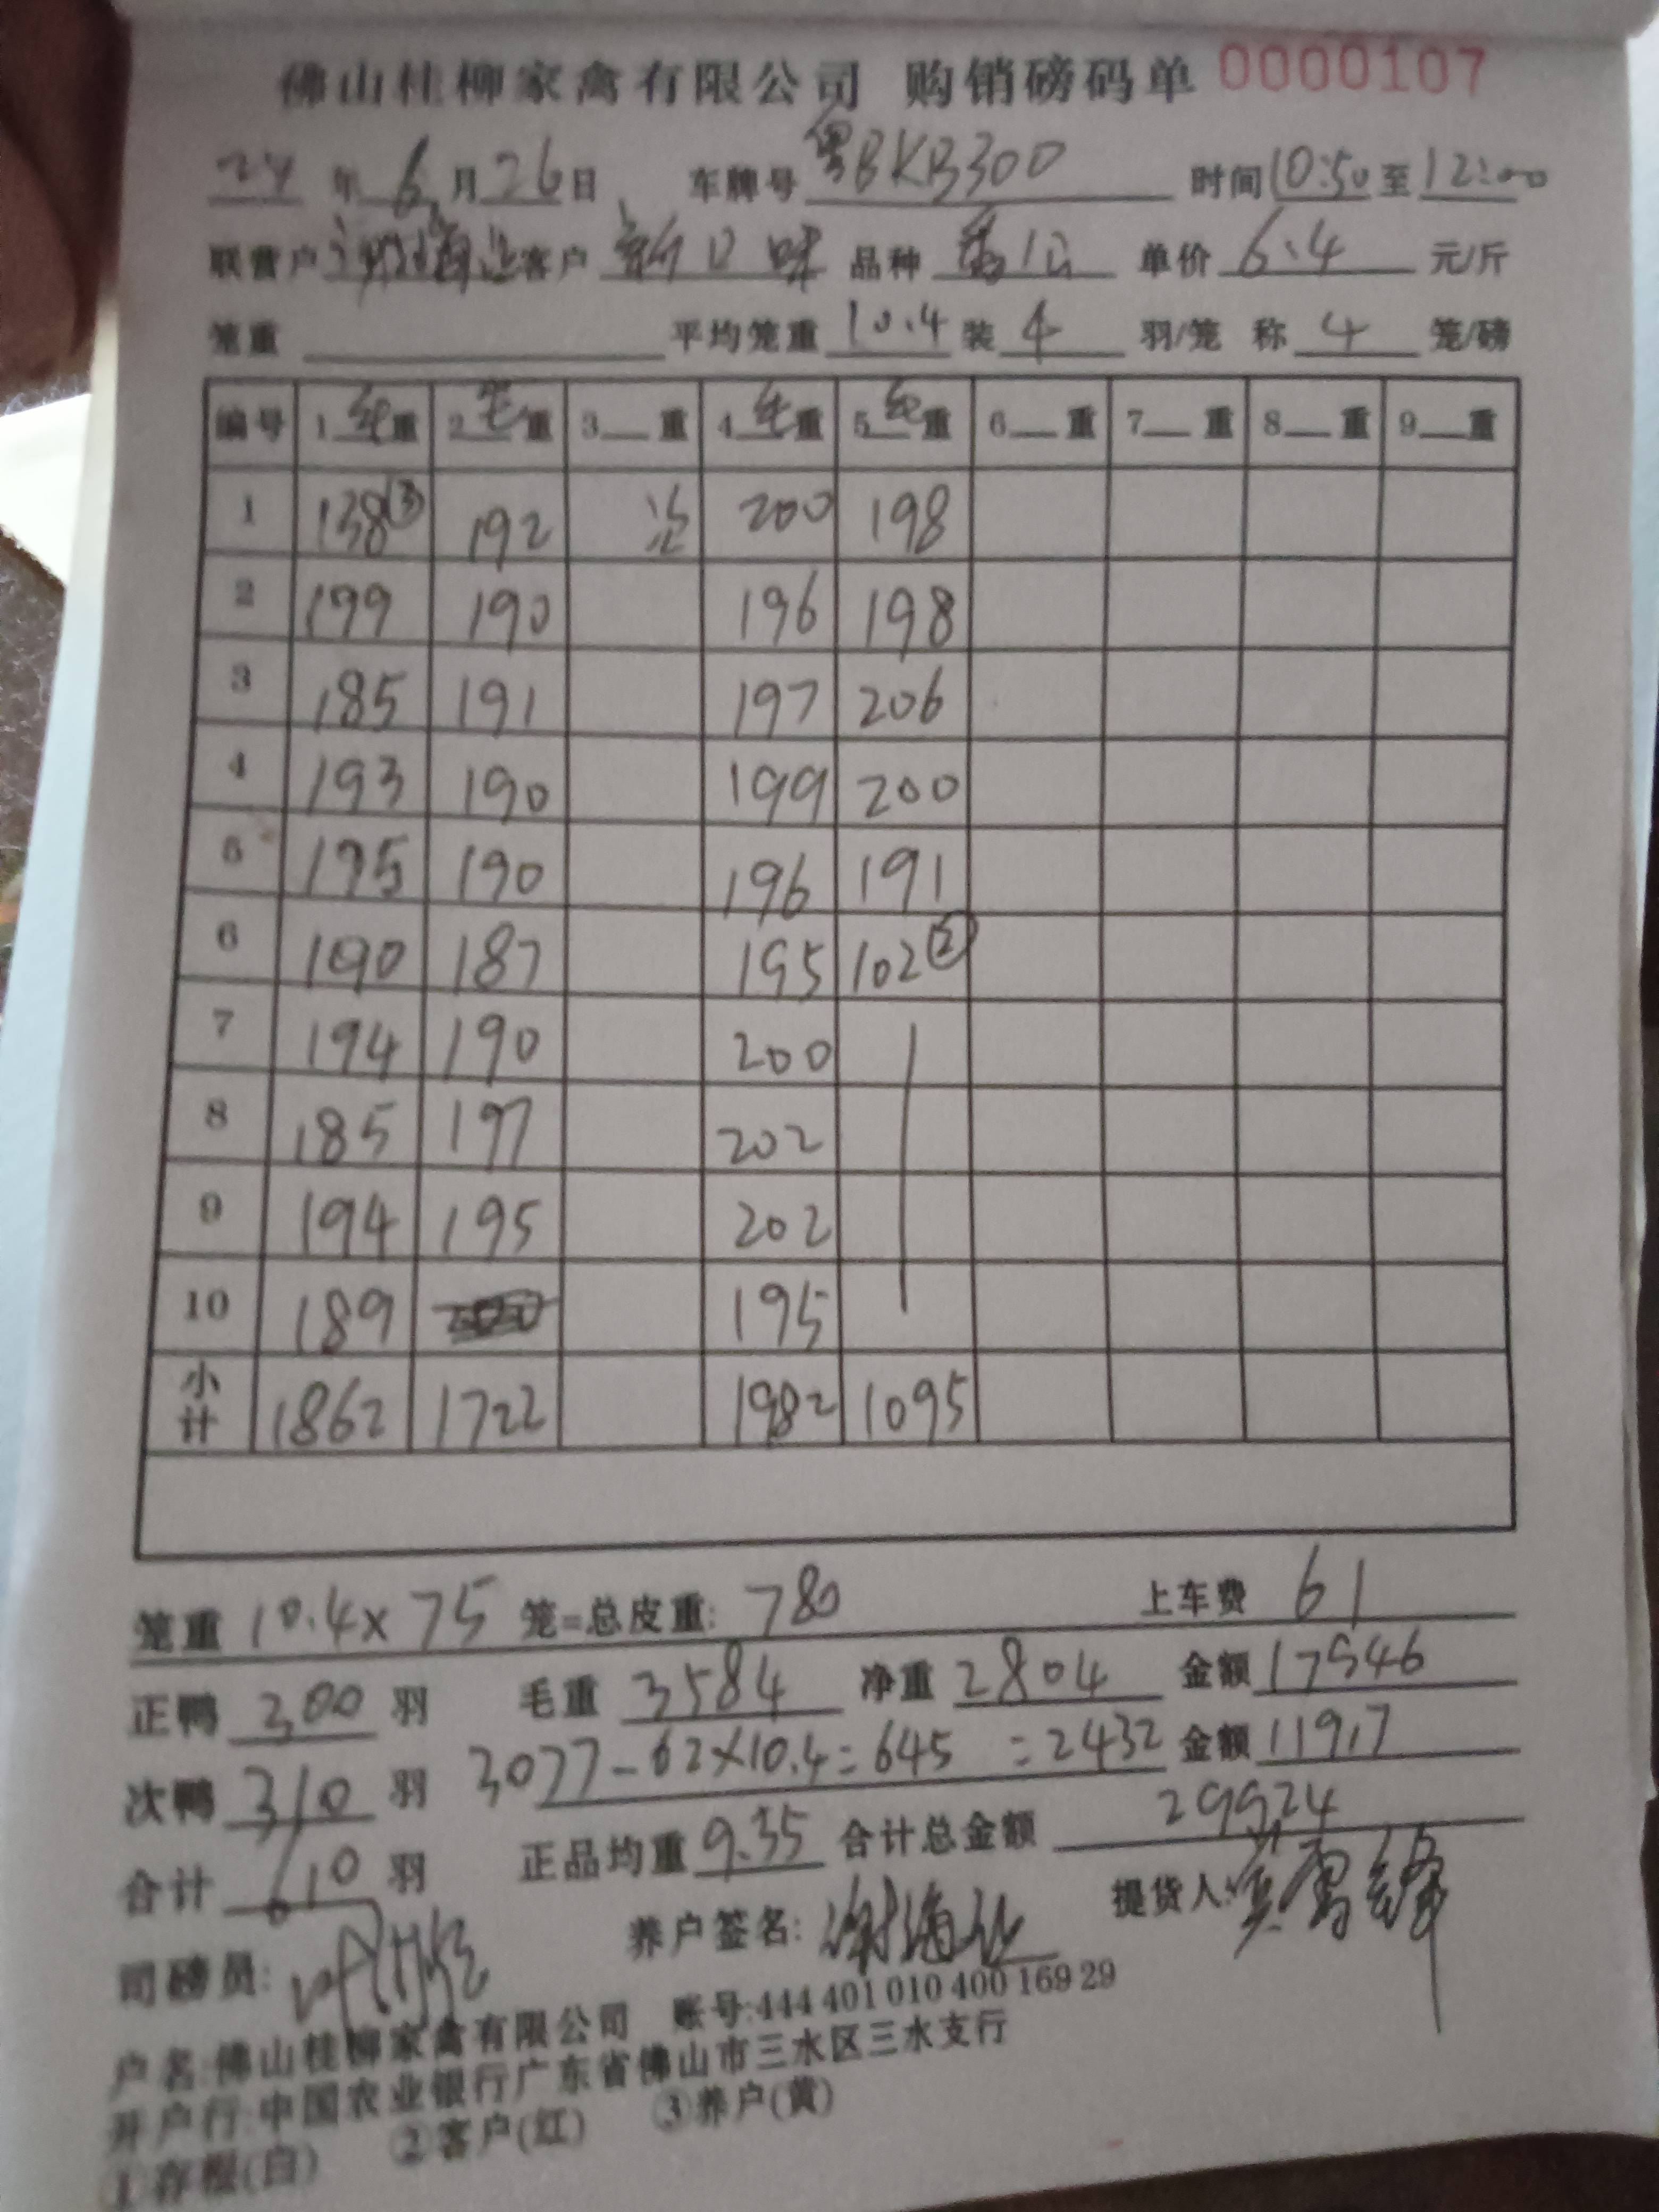 佛山桂柳家禽有限公司 购销磅码单 0000107
24 年 6 月 26 日 车牌号 粤BKB300 时间 10:50 至 12:00
联营户 客户 新口味 品种 单价 6.4 元/斤
笼重 平均笼重 10.4 装 4 羽/笼 称 4 笼/磅
编号 1 毛重 2 毛重 3 重 4 毛重 5 毛重 6 重 7 重 8 重 9 重
1 138③ 192 200 198
2 199 190 196 198
3 185 191 197 206
4 193 190 199 200
5 195 190 196 191
6 190 187 195 102②
7 194 190 200
8 185 197 202
9 194 195 202
10 189 195
小计 1862 1722 1982 1095
笼重 10.4×75 笼=总皮重: 780 上车费 61
正鸭 300 羽 毛重 3584 净重 2804 金额 17946
次鸭 310 羽 3077-62×10.4=645 =2432 金额 11917
合计 610 羽 正品均重 9.35 合计总金额 29924
司磅员: 养户签名: 谢 提货人:
户名:佛山桂柳家禽有限公司 账号:444 401 010 400 169 29
开户行:中国农业银行广东省佛山市三水区三水支行
①存根(白) ②客户(红) ③养户(黄)